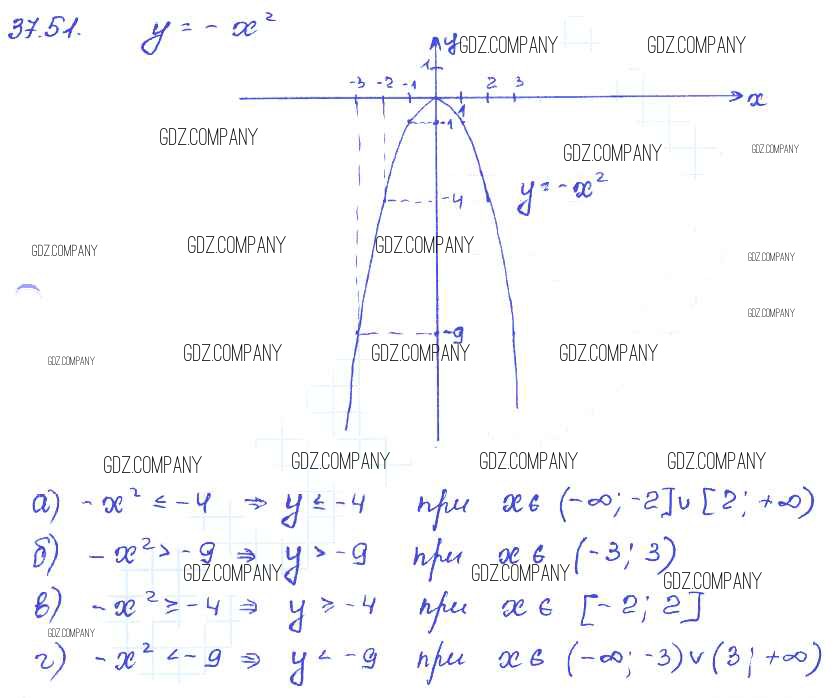 37.51. y = - x²
y GDZ.COMPANY GDZ.COMPANY
1
-3 -2 -1 2 3
x
1
-1
GDZ.COMPANY GDZ.COMPANY GDZ.COMPANY
y = -x²
-4
GDZ.COMPANY GDZ.COMPANY GDZ.COMPANY GDZ.COMPANY
GDZ.COMPANY
-9
GDZ.COMPANY GDZ.COMPANY GDZ.COMPANY GDZ.COMPANY
GDZ.COMPANY GDZ.COMPANY GDZ.COMPANY GDZ.COMPANY
а) -x² ≤ -4 ⇒ y ≤ -4 при x ∈ (-∞; -2] ∪ [2; +∞)
б) -x² > -9 ⇒ y > -9 при x ∈ (-3; 3)
GDZ.COMPANY GDZ.COMPANY GDZ.COMPANY
в) -x² ≥ -4 ⇒ y ≥ -4 при x ∈ [-2; 2]
GDZ.COMPANY
г) -x² < -9 ⇒ y < -9 при x ∈ (-∞; -3) ∪ (3; +∞)